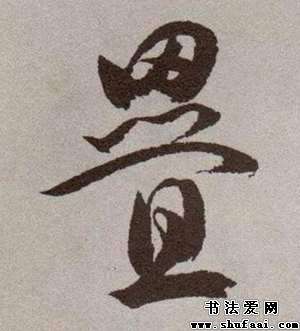 疊
书法爱网
www.shufaai.com